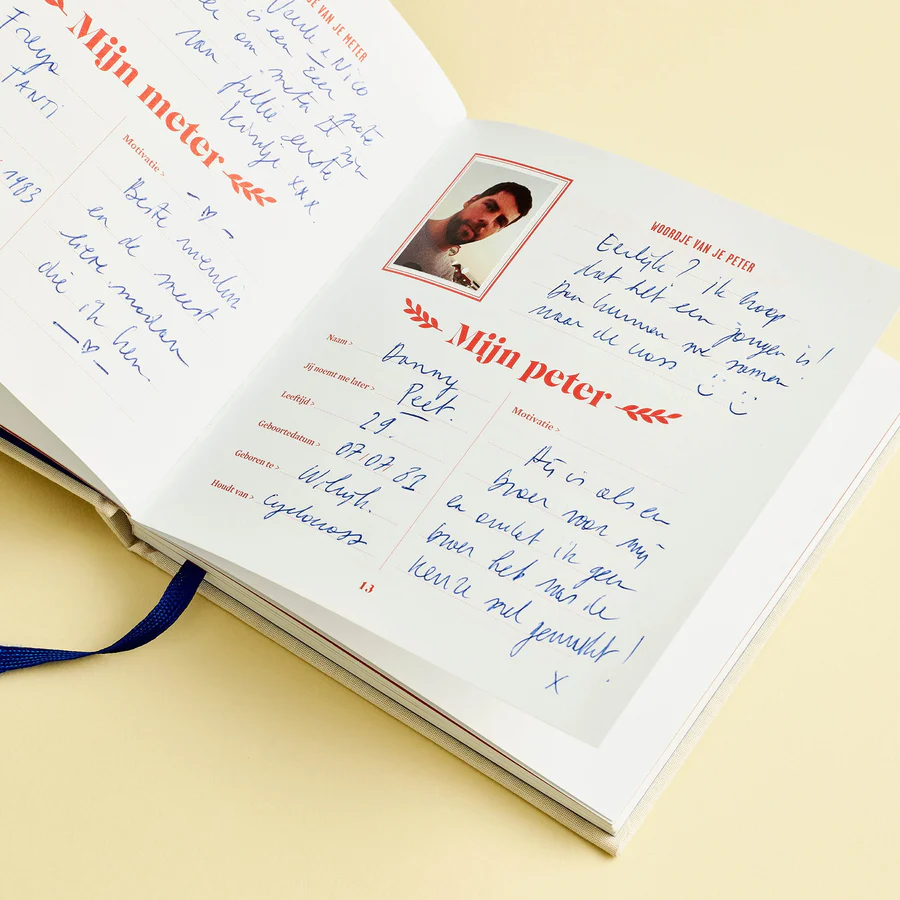 DE VAN JE METER
Veerle & Nico
is een Eer
om meter te zijn
van jullie eerste
kindje xxx
Mijn meter
Freya
TANTI
1983
Motivatie >
Beste vriendin
en de meest
lieve madam
die ik ken.
WOORDJE VAN JE PETER
Eerlijk? ik hoop
dat het een jongen is!
Dan kunnen we samen
naar de cross
Mijn peter
Naam > Danny
Jij noemt me later > Peet.
Leeftijd > 29.
Geboortedatum > 07/07/81
Geboren te > Wilrijk.
Houdt van > Cyclocross
Motivatie >
Hij is als en
broer voor mij
en omdat ik geen
broer heb was de
keuze snel gemaakt!
x
13